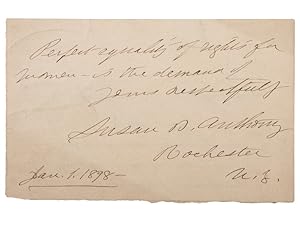 Perfect equality of rights for
women - is the demand of
yours respectfully
Susan B. Anthony
Rochester
Jan. 1. 1898- N. Y.